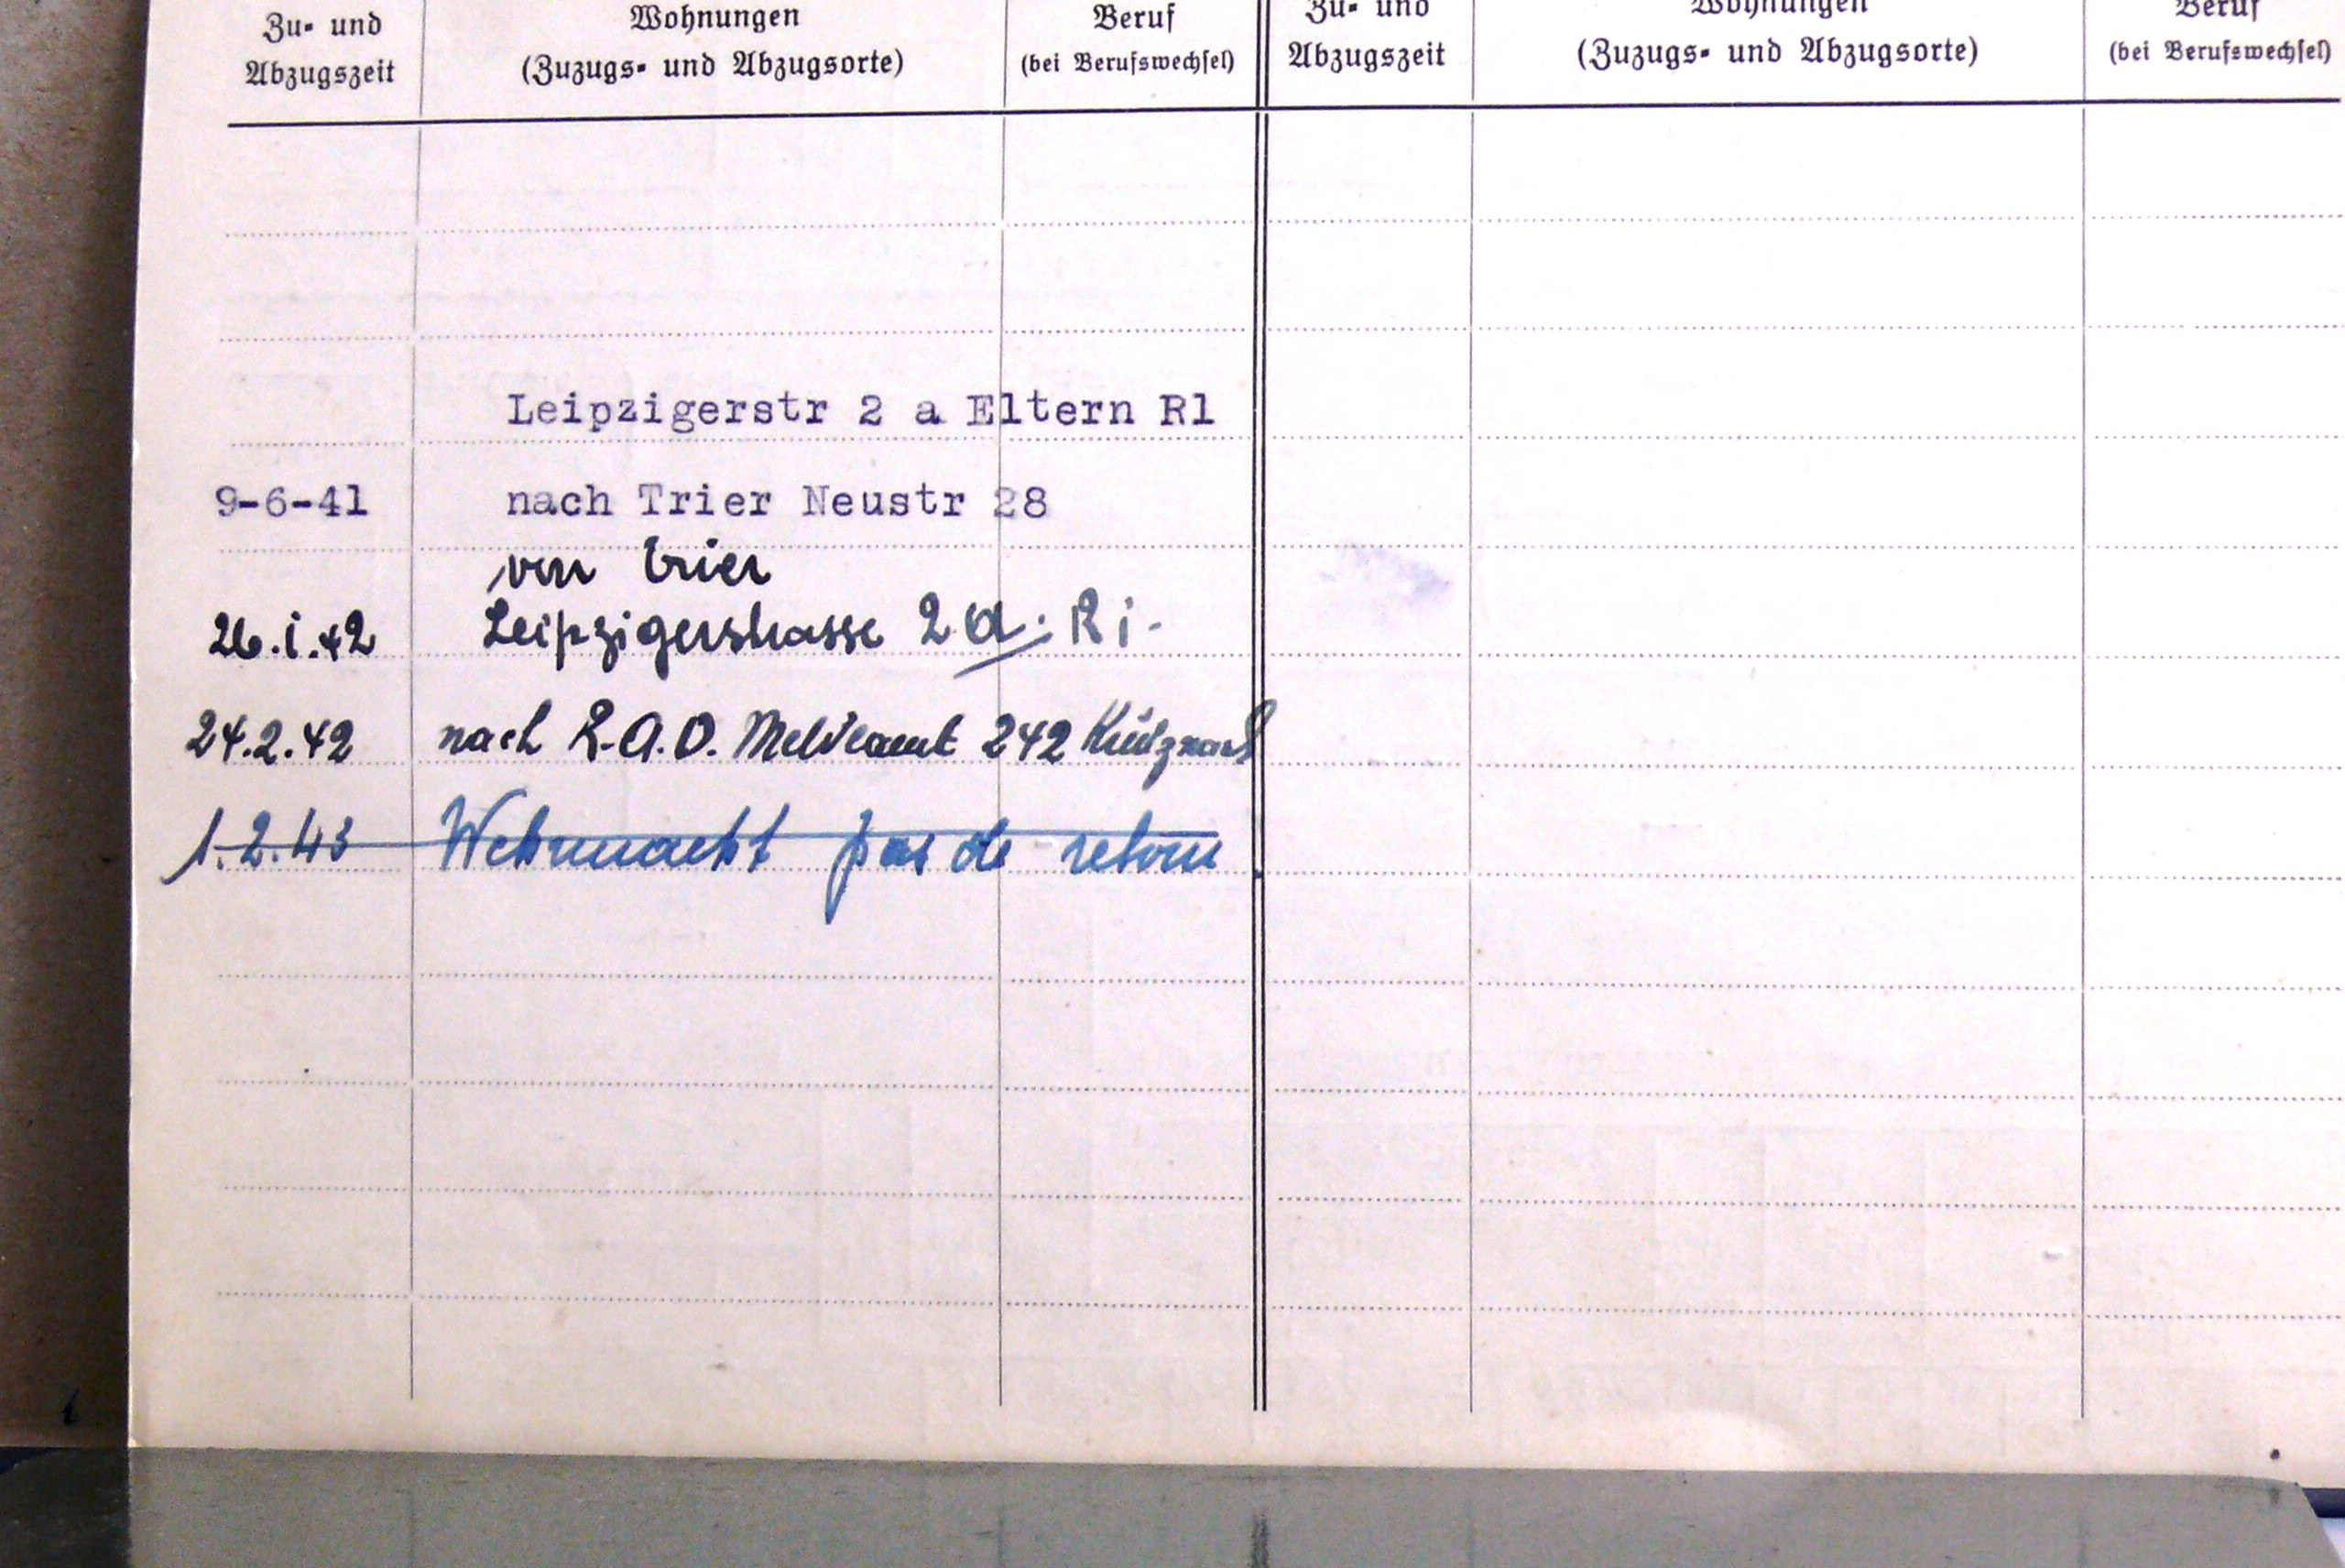 Zu- und Abzugszeit Wohnungen (Zuzugs- und Abzugsorte) Beruf (bei Berufswechsel) Zu- und Abzugszeit Wohnungen (Zuzugs- und Abzugsorte) Beruf (bei Berufswechsel)
Leipzigerstr 2 a Eltern Rl
9-6-41 nach Trier Neustr 28
von Trier
26.i.42 Leipzigerstrasse 2a. Ri-
24.2.42 nach R.A.D. Meldeamt 242
1.2.43 Wehrmacht pas de retour